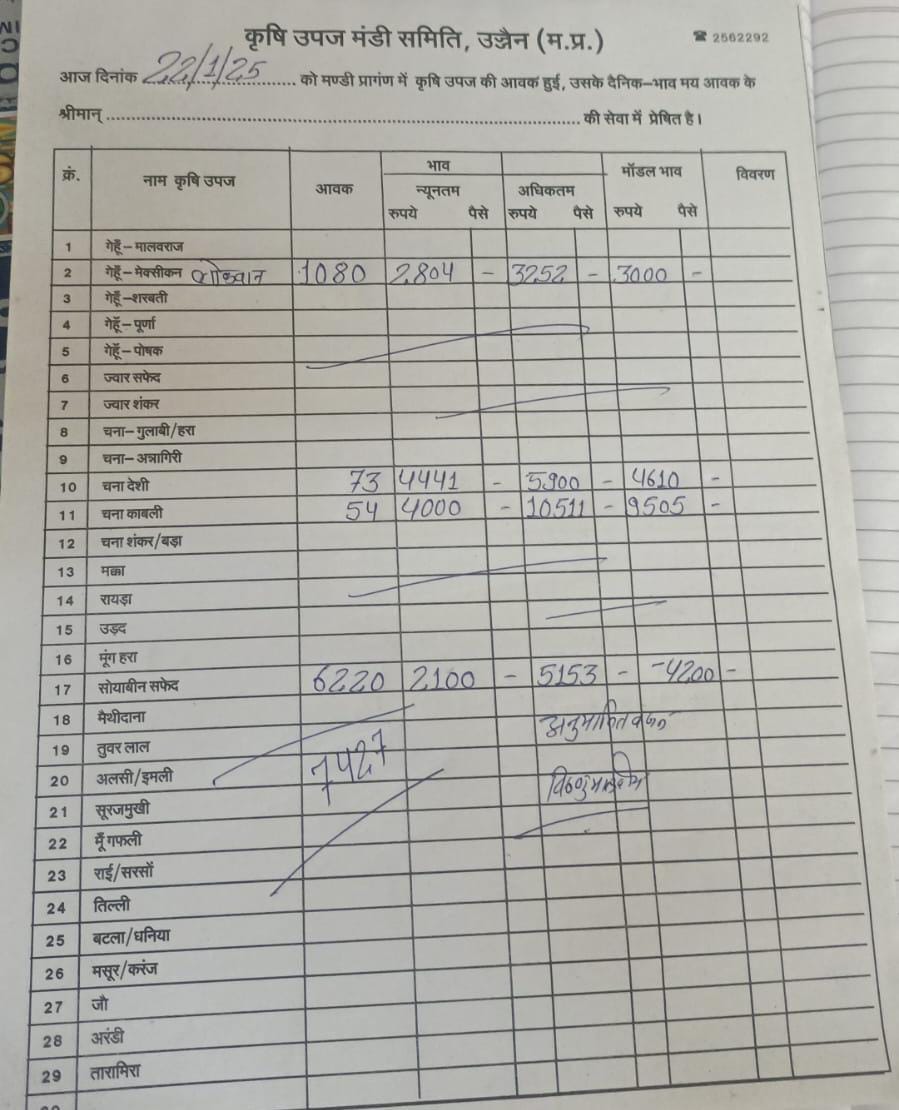 कृषि उपज मंडी समिति, उज्जैन (म.प्र.) ☎ 2562292
आज दिनांक 22/1/25 को मण्डी प्रागंण में कृषि उपज की आवक हुई, उसके दैनिक-भाव मय आवक के
श्रीमान् की सेवा में प्रेषित है।
क्रं. नाम कृषि उपज आवक भाव मॉडल भाव विवरण
न्यूनतम अधिकतम
रुपये पैसे रुपये पैसे रुपये पैसे
1 गेहूँ-मालवराज
2 गेहूँ-मेक्सीकन लोकवान 1080 2804 - 3252 - 3000 -
3 गेहूँ-शरबती
4 गेहूँ-पूर्णा
5 गेहूँ-पोषक
6 ज्वार सफेद
7 ज्वार शंकर
8 चना-गुलाबी/हरा
9 चना-अन्नागिरी
10 चना देशी 73 4441 - 5900 - 4610 -
11 चना काबली 54 4000 - 10511 - 9505 -
12 चना शंकर/बड़ा
13 मक्का
14 रायड़ा
15 उड़द
16 मूंग हरा
17 सोयाबीन सफेद 6220 2100 - 5153 - -4200 -
18 मैथीदाना
19 तुवर लाल
7427
20 अलसी/इमली
21 सूरजमुखी
22 मूँगफली
23 राई/सरसों
24 तिल्ली
25 बटला/धनिया
26 मसूर/करंज
27 जौ
28 अरंडी
29 तारामिरा